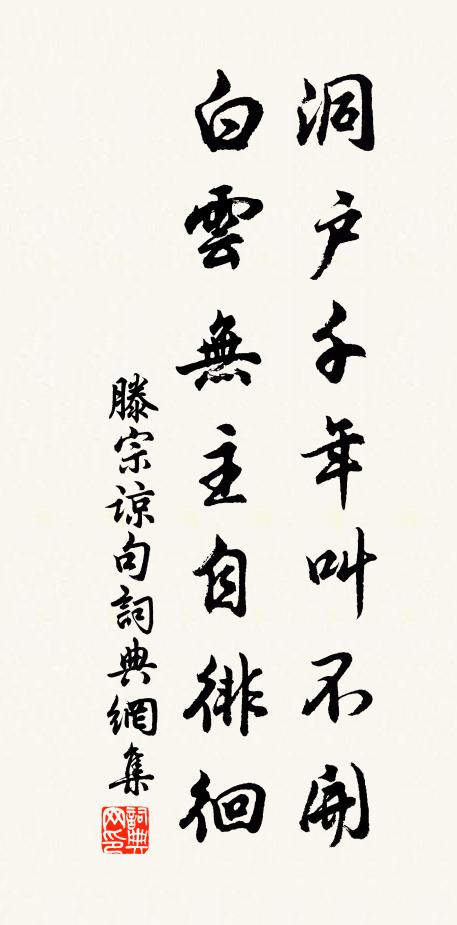 洞户千年叫不開
白雲無主自徘徊
滕宗谅句詞典網集
詞典网印